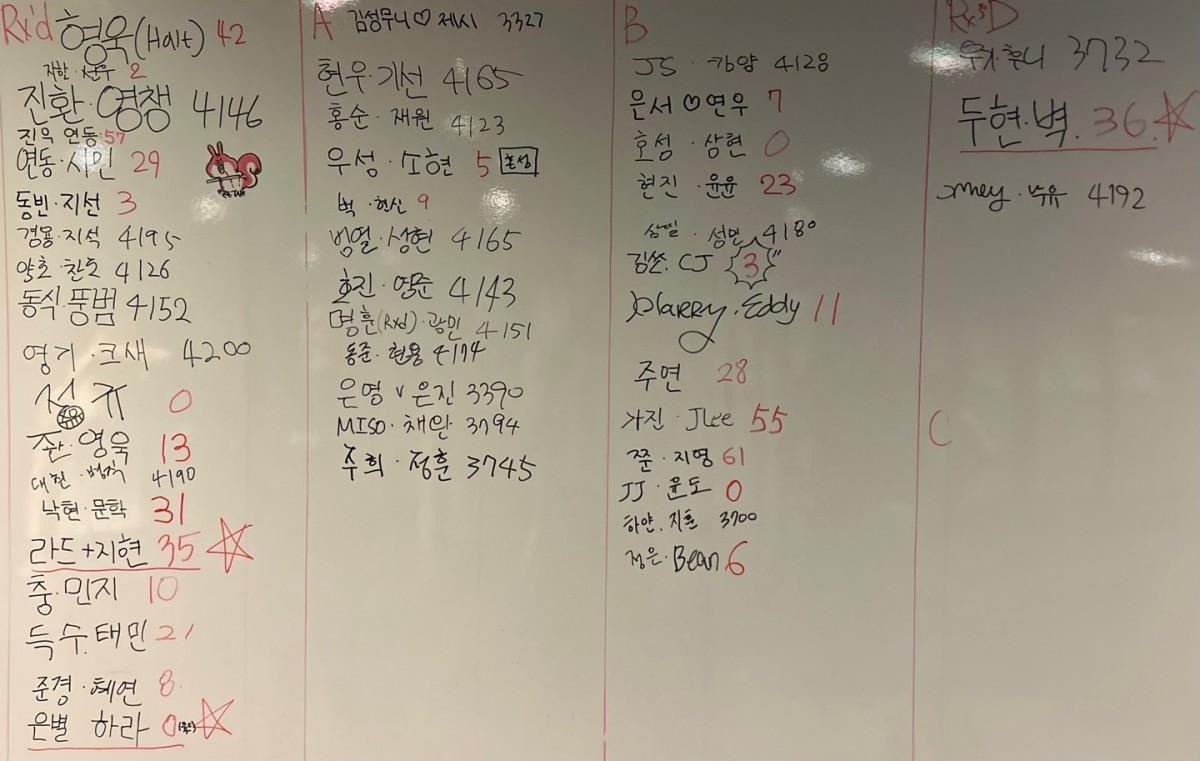 Rx'd 형욱(Halt) 42
지환·선우 2
진환·영쟁 4146
진욱 연동 57
연동·시인 29
동빈·지선 3
경몽·지석 4195
약초·찬호 4126
동식·뚱범 4152
영기·크새 4200
성규 0
존·영욱 13
대현·범식 4190
낙현·문학 31
라드+지현 35
춤·민지 10
득수.태민 21
준경·혜연 8
은별 하라 0
A 김성무니♡제시 3327
현우·기선 4165
홍순·재원 4123
우성·소현 5 호성
벽·현신 9
범열·성현 4165
호진·영준 4143
명훈(Rxd)·광민 4151
동준·현용 4174
은영 v 은진 3390
MISO·채완 3794
주희·정훈 3745
B
JS·캬양 4128
은서♡연우 7
호성·상현 0
현진·윤윤 23
삼밀·성민 4180
김쏜.CJ 3"
Harry.Eddy 11
주연 28
가진·JLee 55
쭌·지영 61
JJ·윤도 0
하얀.지훈 3700
정은·Bean 6
Rx'D
후니 3732
두현·벽.36.
mey·수유 4192
C